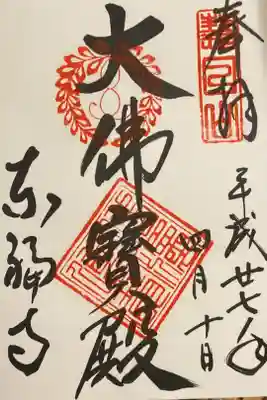 奉拝
平成廿七年
四月十日
大佛寳殿
東福寺